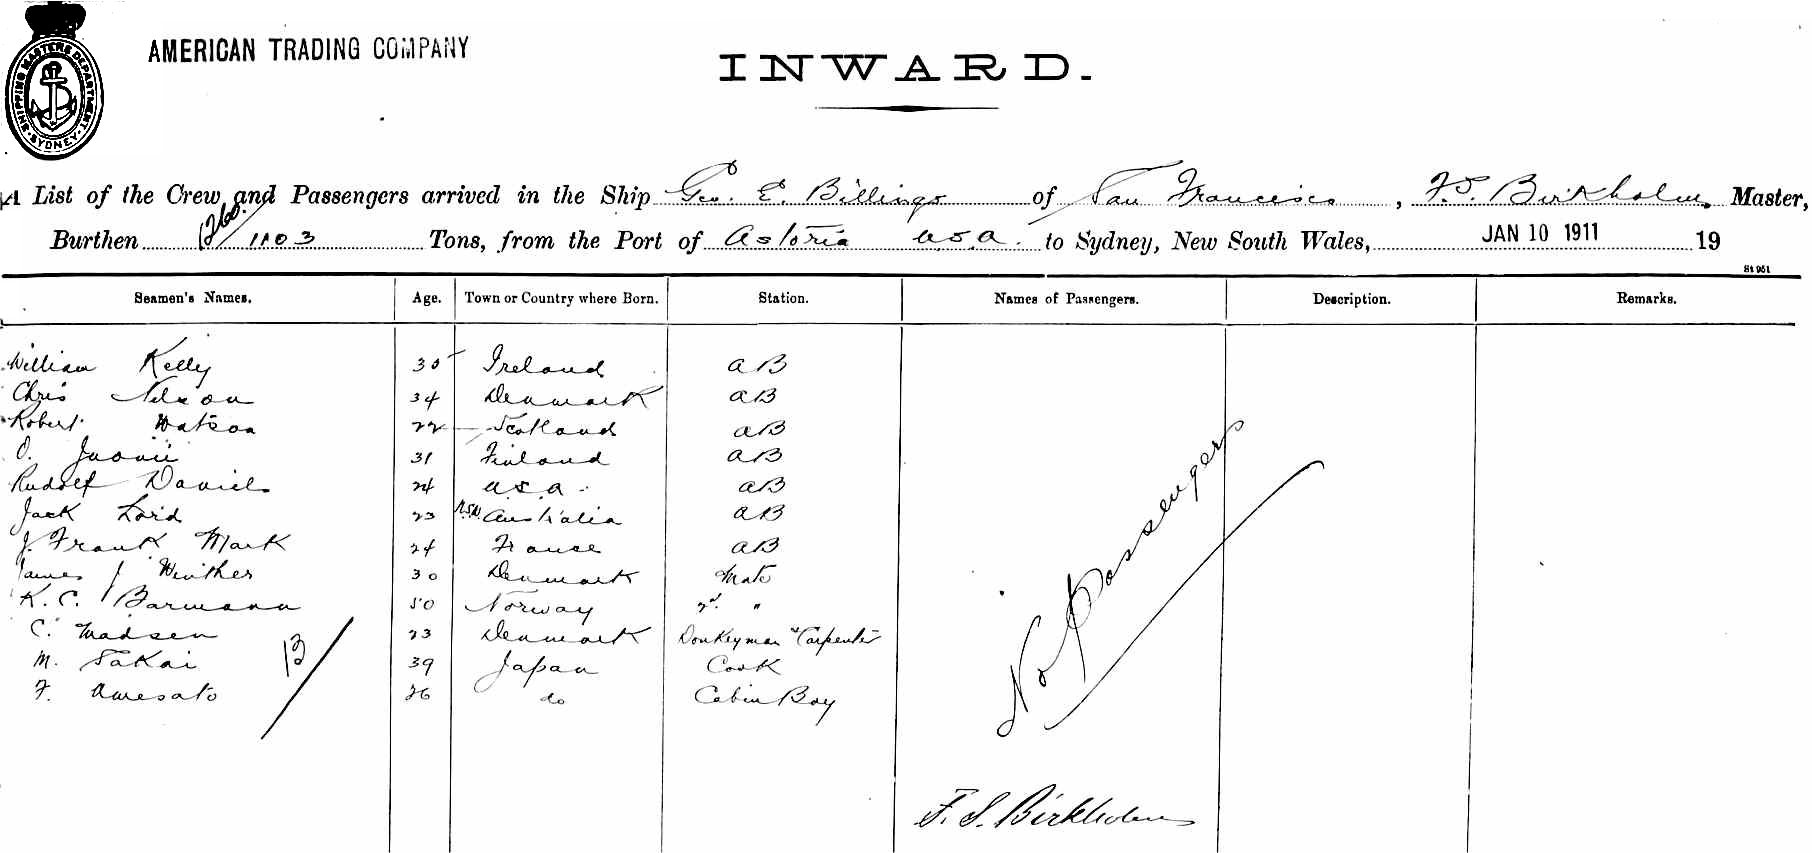 SHIPPING MASTERS DEPARTMENT
SYDNEY
AMERICAN TRADING COMPANY
INWARD.
A List of the Crew and Passengers arrived in the Ship Geo. E. Billings of San Francisco, F. S. Birkholm Master,
Burthen 1260/1103 Tons, from the Port of Astoria U.S.A. to Sydney, New South Wales, JAN 10 1911 19
St 951
Seamen's Names. Age. Town or Country where Born. Station. Names of Passengers. Description. Remarks.
William Kelly 30 Ireland AB
Chris Nelson 34 Denmark AB
Robert Watson 22 Scotland AB
O. 31 Finland AB
Rudolf Daniels 24 U.S.A. AB
Jack Lord 23 N.S.W. Australia AB
J. Frank Mark 24 France AB
James J Winther 30 Denmark Mate
K. C. Barmann 50 Norway 2d. "
C. Madsen 23 Denmark Donkeyman & Carpenter
M. Sakai 39 Japan Cook
F. 26 do Cabin Boy
13
No Passengers
F. S. Birkholm